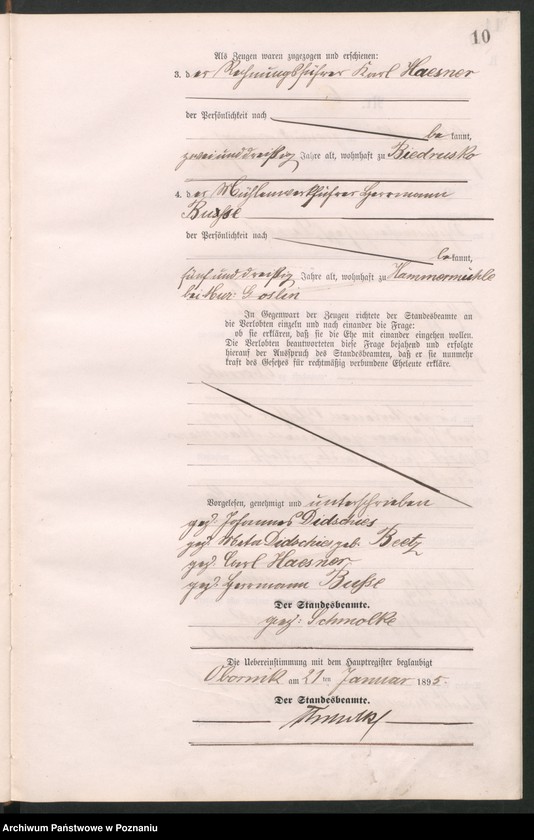 10
Als Zeugen waren zugezogen und erschienen:
3. der Rechnungsführer Karl Haesner
der Persönlichkeit nach
be kannt,
zweiunddreißig Jahre alt, wohnhaft zu Biedrusko
4. der Mühlenwerkführer Herrmann
Busse
der Persönlichkeit nach
be kannt,
fünfunddreißig Jahre alt, wohnhaft zu Hammermühle
bei Mur: Goslin
In Gegenwart der Zeugen richtete der Standesbeamte an
die Verlobten einzeln und nach einander die Frage:
ob sie erklären, daß sie die Ehe mit einander eingehen wollen.
Die Verlobten beantworteten diese Frage bejahend und erfolgte
hierauf der Ausspruch des Standesbeamten, daß er sie nunmehr
kraft des Gesetzes für rechtmäßig verbundene Eheleute erkläre.
Vorgelesen, genehmigt und unterschrieben
gez: Johannes Didschies
gez: Meta Didschies geb. Beetz
gez: Carl Haesner
gez: Herrmann Busse
Der Standesbeamte.
gez: Schmolke
Die Uebereinstimmung mit dem Hauptregister beglaubigt
Obornik am 21 ten Januar 1895.
Der Standesbeamte.
Schmolke
Archiwum Państwowe w Poznaniu